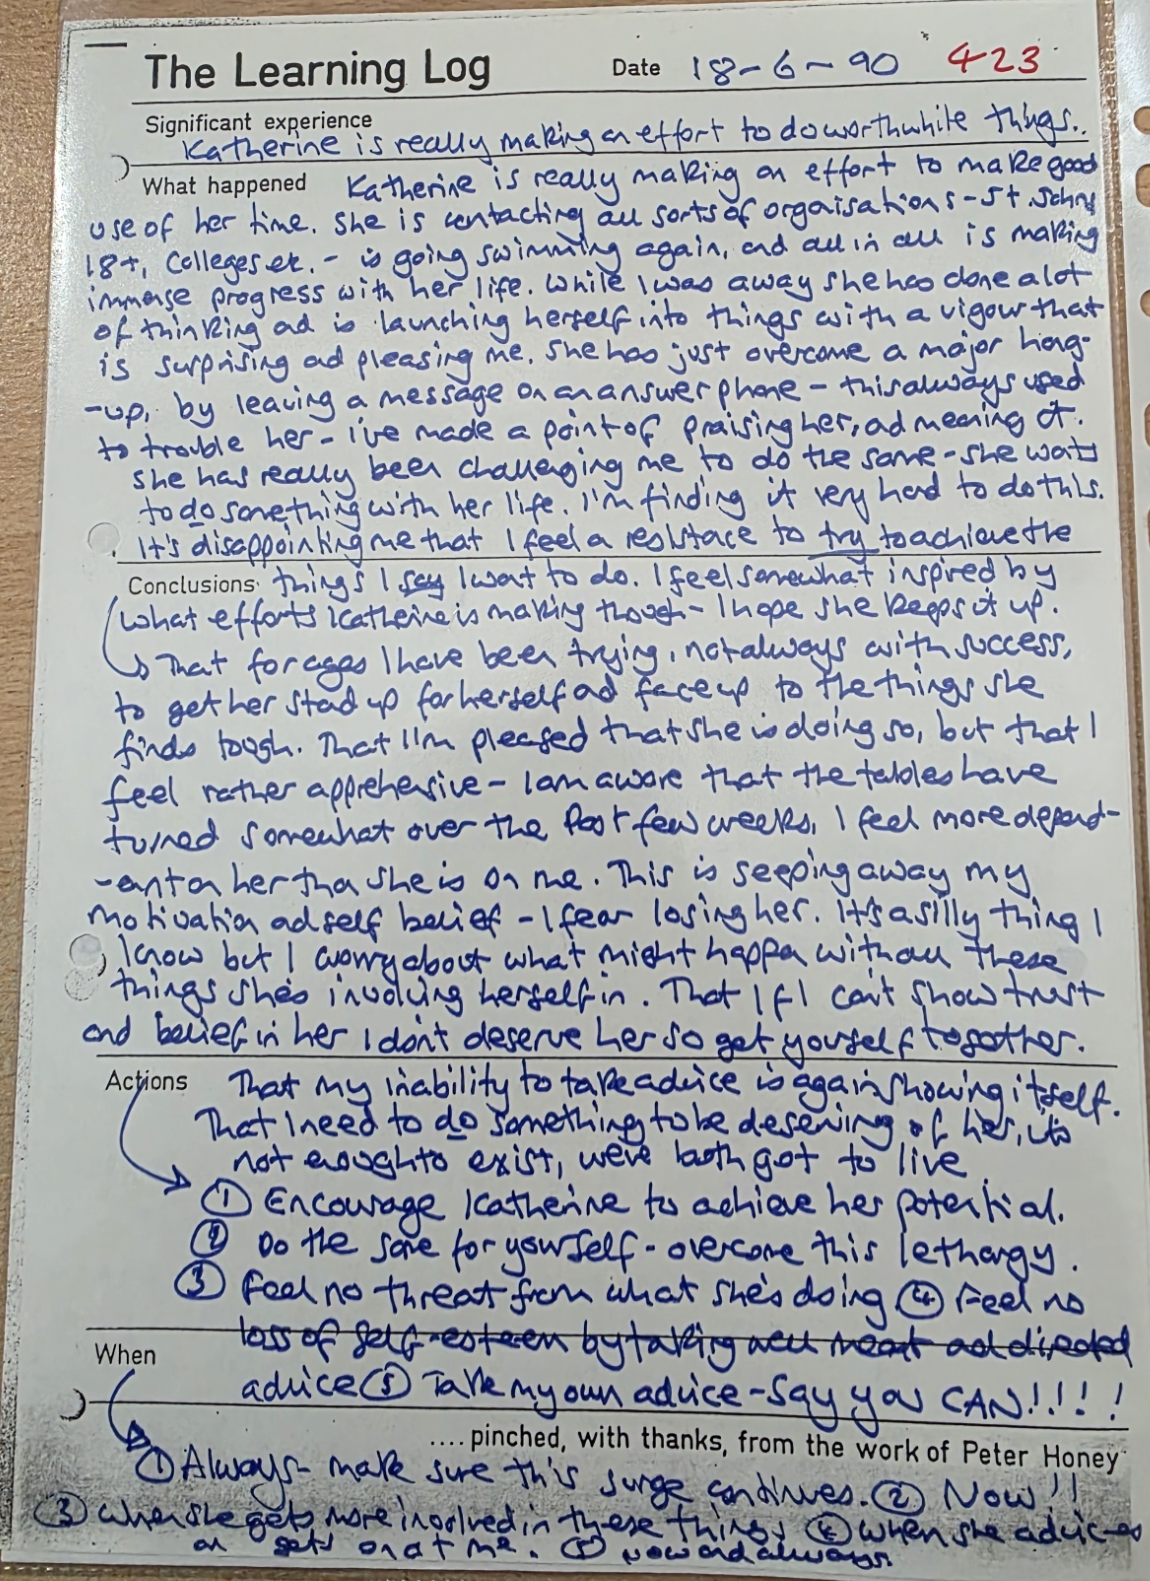 The Learning Log Date 18-6-90 423
Significant experience
Katherine is really making an effort to do worthwhile things..
What happened Katherine is really making an effort to make good
use of her time. She is contacting all sorts of orgaisations - St. Johns
18+, Colleges etc. - is going swimming again, and all in all is making
immense progress with her life. While I was away she has done a lot
of thinking ad is launching herself into things with a vigour that
is surprising ad pleasing me. She has just overcome a major hang-
-up, by leaving a message on an answer phone - this always used
to trouble her - I've made a point of praising her, ad meaning it.
She has really been challenging me to do the same - she wants
to do something with her life. I'm finding it very hard to do this.
It's disappointing me that I feel a resistace to try to achieve the
Conclusions things I say I want to do. I feel somewhat inspired by
what efforts Katherine is making though - I hope she keeps it up.
That for ages I have been trying, not always with success,
to get her stad up for herself ad face up to the things she
finds tough. That I'm pleased that she is doing so, but that I
feel rather apprehensive - I am aware that the tables have
turned somewhat over the past few weeks, I feel more depend-
-ant on her tha she is on me. This is seeping away my
motivation ad self belief - I fear losing her. It's a silly thing I
know but I worry about what might happen with all these
things she's involving herself in. That if I can't show trust
and belief in her I don't deserve her so get yourself together.
Actions That my inability to take advice is again showing itself.
That I need to do something to be deserving of her, its
not enough to exist, we've both got to live
① Encourage Katherine to achieve her potential.
② Do the same for yourself - overcome this lethargy.
③ Feel no threat from what she's doing ④ Feel no
loss of self-esteem by taking well meant ad directed
When
advice ⑤ Take my own advice - say you CAN!!!!
.... pinched, with thanks, from the work of Peter Honey
① Always - make sure this surge continues. ② Now!!
③ When she gets more involved in these things ④ When she advices
or gets on at me. ⑤ Now and always.